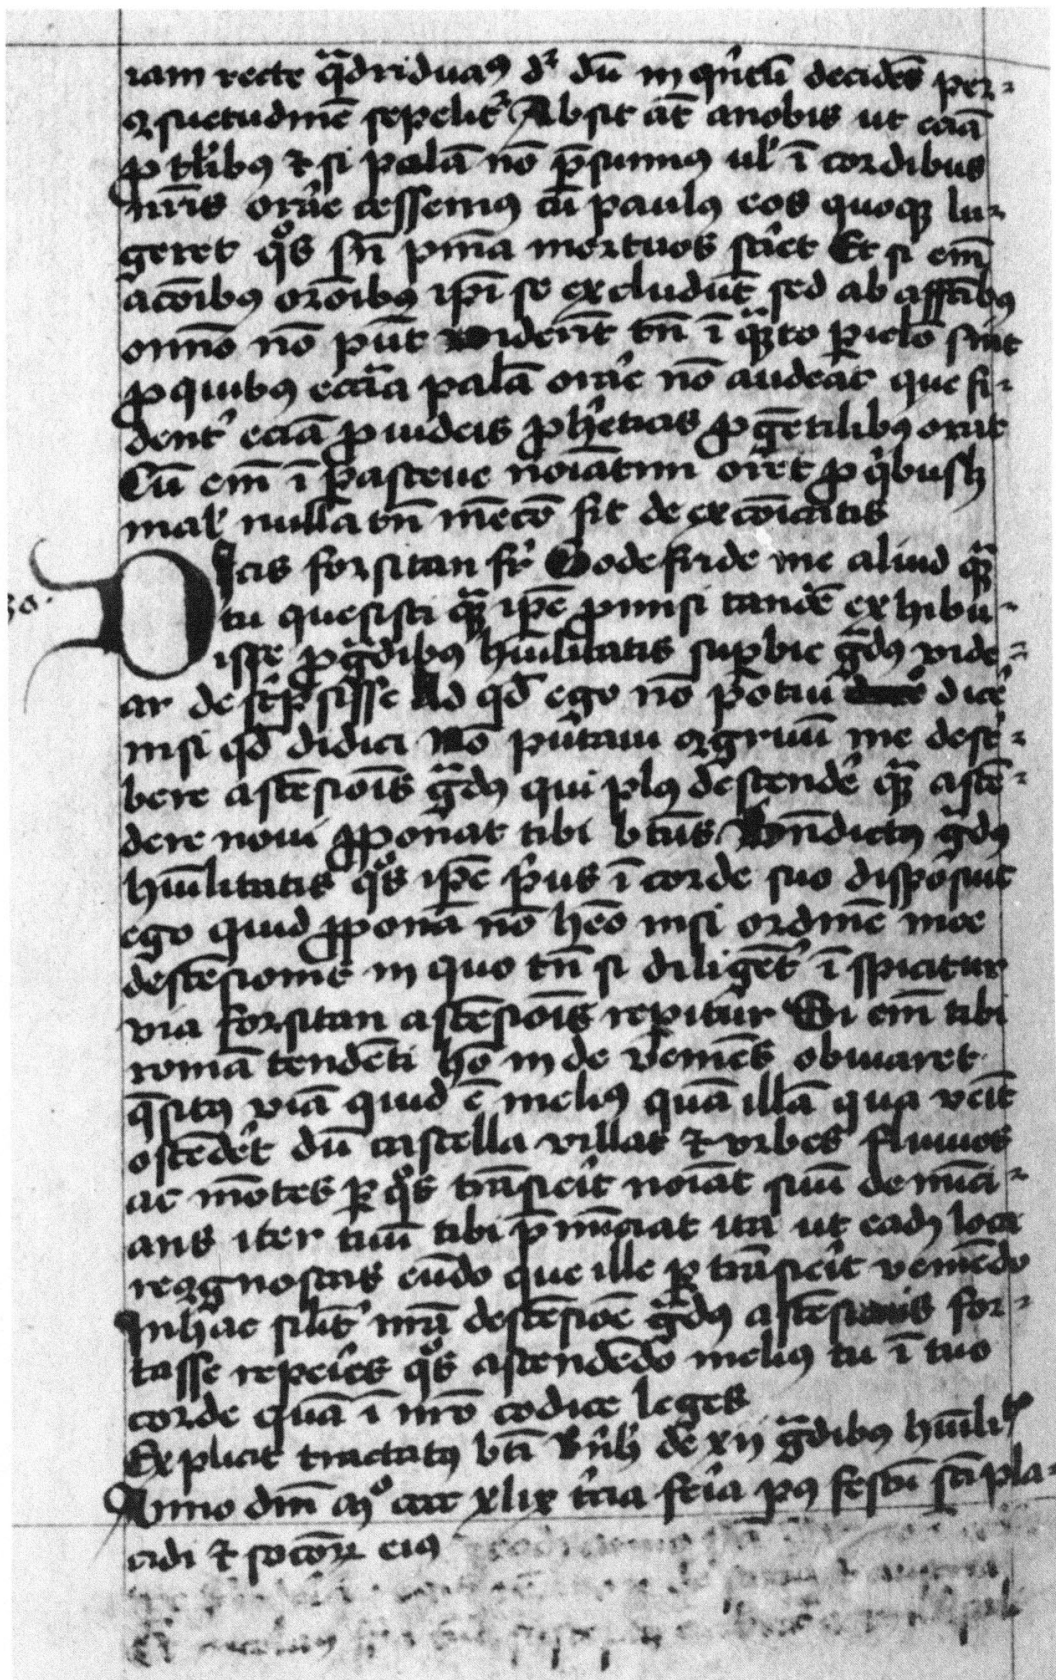 iam recte q̄driduan9 dr̄ dū in qͣrtū decidēs per-
ꝯsuetudinē sepelit᷑ Absit āt anobis ut eciā
ꝓ tl̄ibus ⁊ si palā nō p̄sumus ul̕ ī cordibus
nr̄is orāe cessemus cū paulus eos quoqꝫ lu-
geret qͦs sn̄ pn̄ia mortuos scīet Et si em̄
acōibus orōibus ip̄i se excludūt sed ab affc̄ibus
omnīo nō pn̄t videānt tn̄ ī qͣnto ꝑiclō sint
ꝓ quibus ecc̄ia palā orāe nō audeat que fi-
dent᷑ eciā ꝓ iudeis ꝓ hēticis ꝓ gētilibus orat
Cū em̄ ī ꝑasceue noīatim orēt ꝓ qͥbuslꝫ
mal̕ nulla tn̄ mēcō fit de excōicatis
Dicis forsitan fr̄ Godefride me aliud qͣꝫ
tu quesisti qͣꝫ ip̄e ꝓmisi tandē exhibu-
isse ꝓ gͣdibus hūilitatis suꝑbie gͣdus vide-
ar descͥpsisse Ad qd̄ ego nō potui dicē
nisi qd̄ didici Nō putaui ꝯgruū me descͥ-
bere ascēsiōis gͣdus qui plus descendē qͣꝫ ascē-
dere noui ꝓponat tibi btūs Bn̄dictus gͣdus
hūilitatis qͦs ip̄e pͥus ī corde suo disposuit
ego quid ꝓponā nō hēo nisi ordinē mee
descēsionis in quo tn̄ si diligēt᷑ īspicitur
via forsitan ascēsiōis reꝑitur Si em̄ tibi
romā tendēti hō inde veniēs obuiaret
q̄situs viā quid ē melius quā illā qua veīt
ostēdēt dū castella villas ⁊ vrbes fluuios
ac mōtes ꝑ qͦs trāsieīt noīat suū denūci-
ans iter tuū tibi p̄nūciat ita ut eadē loca
reꝯgnoscas eūdo que ille ꝑtrāsieīt veniēdo
In hac silīt᷑ nrā descēsiōe gͣdus ascēsionis for-
tasse repeīes qͦs ascendēdo melius tu ī tuo
corde quā ī nrō codice leges
Explicit tractatus bt̄i Bn̄h de xij gͣdibus hūilitͭˢ
Anno dm̄ mͦ cccc xlix t̄cia fēia pꝰ festū sc̄i pla-
cidi ⁊ sociōꝝ eius